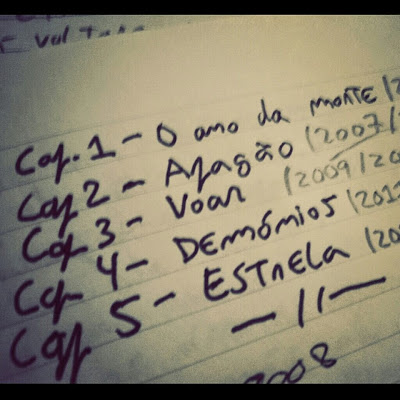 Cap. 1 - O ano da morte /2
Cap 2 - Apagão /2007/
Cap 3 - Voar /2009/20
Cap 4 - Demónios /201
Cap 5 - Estrela /20
— // —
2008